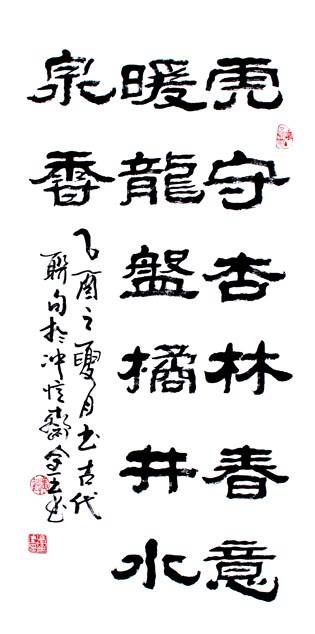 虎守杏林春意
暖龍盤橘井水
泉香
乙酉之夏月书古代
聯句於冲齋